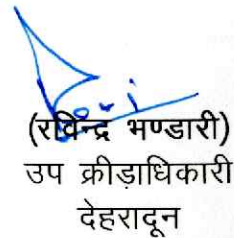 (रविन्द्र भण्डारी)
उप क्रीड़ाधिकारी
देहरादून